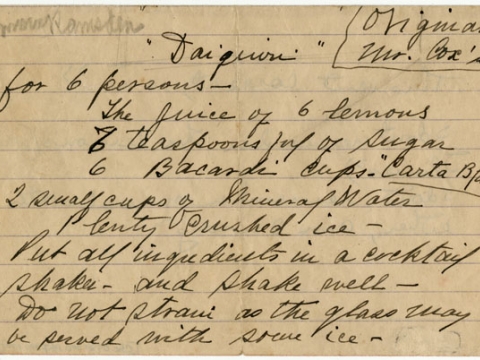 Ramsten
"Daiquiri" (Original
Mr. Cox's
for 6 persons—
The juice of 6 lemons
6 teaspoonsful of sugar
6 Bacardi cups - "Carta Bl
2 small cups of Mineral Water
Plenty crushed ice —
Put all ingredients in a cocktail
shaker - and shake well —
Do not strain as the glass may
be served with some ice —